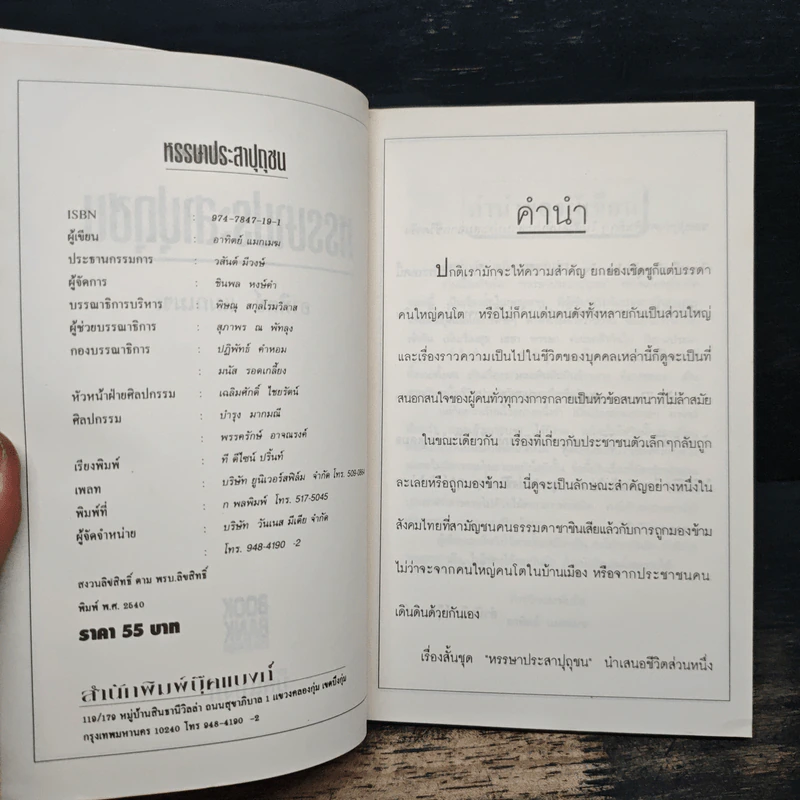 หรรษาประสาปุถุชน
ISBN : 974-7847-19-1
ผู้เขียน : อาทิตย์ แมกเมฆ
ประธานกรรมการ : วสันต์ มีวงษ์
ผู้จัดการ : ชินพล หงษ์คำ
บรรณาธิการบริหาร : พิษณุ สกุลโรมวิลาส
ผู้ช่วยบรรณาธิการ : สุภาพร ณ พัทลุง
กองบรรณาธิการ : ปฏิพัทธ์ คำหอม
มนัส รอดเกลี้ยง
หัวหน้าฝ่ายศิลปกรรม : เฉลิมศักดิ์ ไชยรัตน์
ศิลปกรรม : บำรุง มากมณี
พรรครักษ์ อาจณรงค์
เรียงพิมพ์ : ที ดีไซน์ ปริ้นท์
เพลท : บริษัท ยูนิเวอร์สฟิล์ม จำกัด โทร. 509-0864
พิมพ์ที่ : ก พลพิมพ์ โทร. 517-5045
ผู้จัดจำหน่าย : บริษัท วันเนส มีเดีย จำกัด
: โทร. 948-4190 -2
สงวนลิขสิทธิ์ ตาม พรบ.ลิขสิทธิ์
พิมพ์ พ.ศ. 2540
ราคา 55 บาท
สำนักพิมพ์บุ๊คแบงก์
119/179 หมู่บ้านสินธานีวิลล่า ถนนสุขาภิบาล 1 แขวงคลองกุ่ม เขตบึงกุ่ม
กรุงเทพมหานคร 10240 โทร 948-4190 -2
คำนำ
ปกติเรามักจะให้ความสำคัญ ยกย่องเชิดชูก็แต่บรรดา
คนใหญ่คนโต หรือไม่ก็คนเด่นคนดังทั้งหลายกันเป็นส่วนใหญ่
และเรื่องราวความเป็นไปในชีวิตของบุคคลเหล่านี้ก็ดูจะเป็นที่
สนอกสนใจของผู้คนทั่วทุกวงการกลายเป็นหัวข้อสนทนาที่ไม่ล้าสมัย
ในขณะเดียวกัน เรื่องที่เกี่ยวกับประชาชนตัวเล็กๆกลับถูก
ละเลยหรือถูกมองข้าม นี่ดูจะเป็นลักษณะสำคัญอย่างหนึ่งใน
สังคมไทยที่สามัญชนคนธรรมดาชาชินเสียแล้วกับการถูกมองข้าม
ไม่ว่าจะจากคนใหญ่คนโตในบ้านเมือง หรือจากประชาชนคน
เดินดินด้วยกันเอง
เรื่องสั้นชุด "หรรษาประสาปุถุชน" นำเสนอชีวิตส่วนหนึ่ง